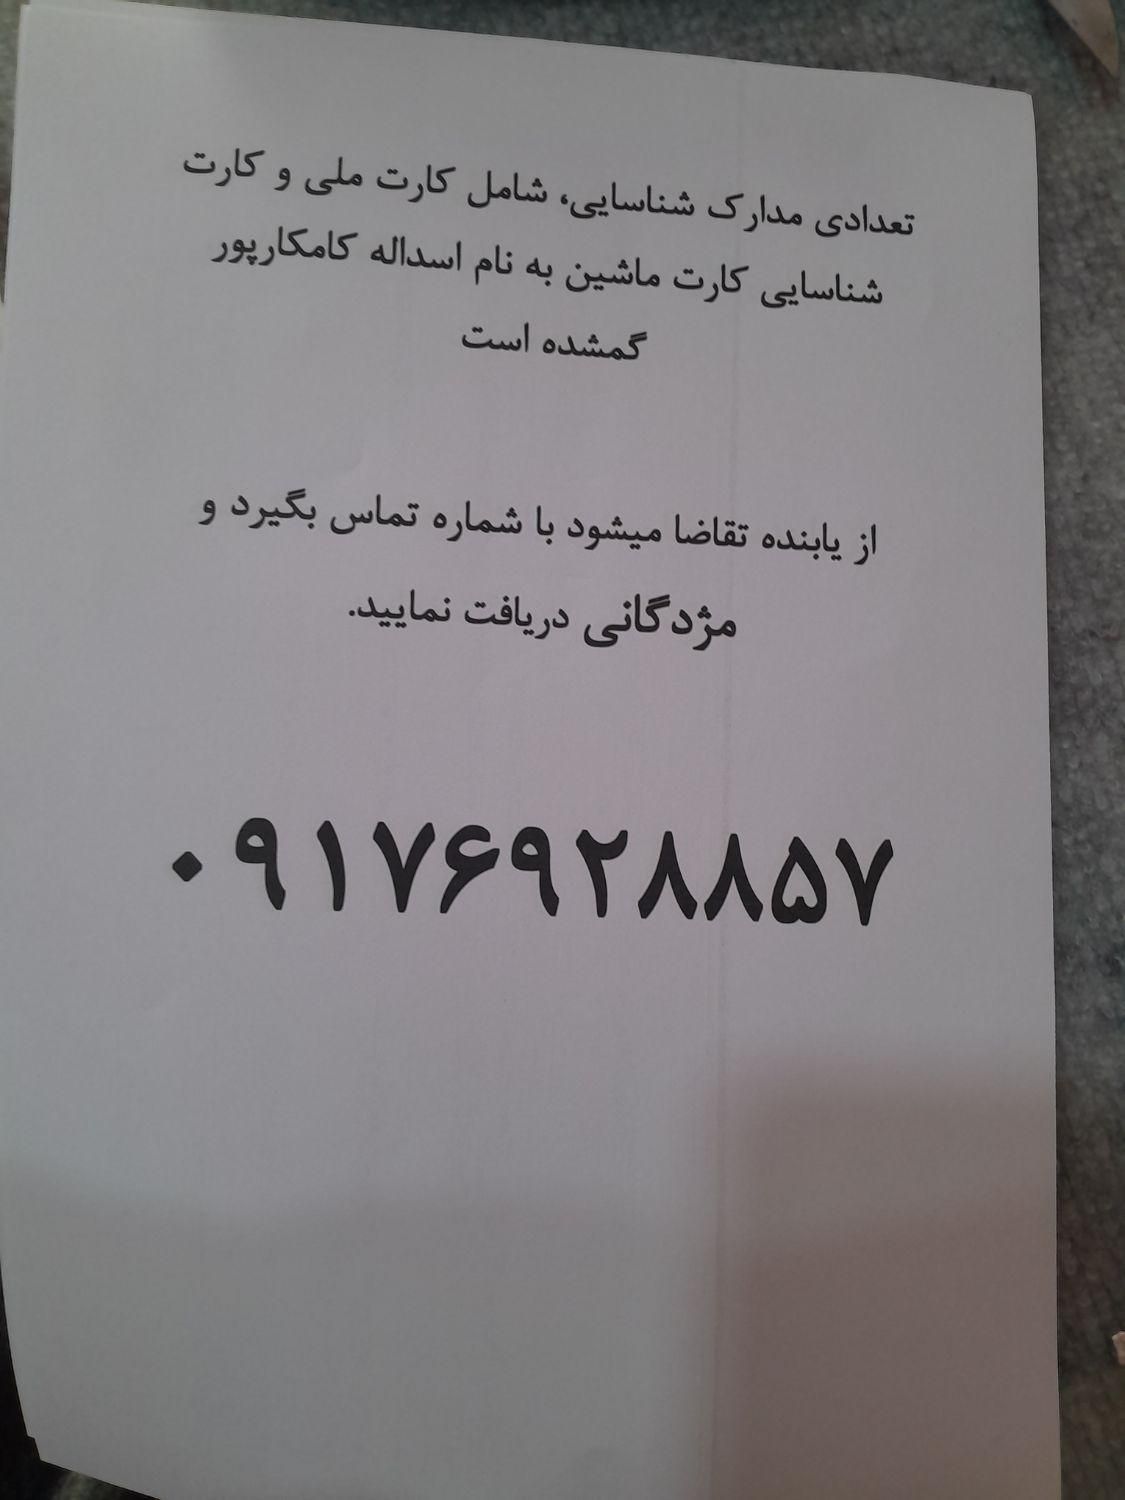 تعدادی مدارک شناسایی، شامل کارت ملی و کارت
شناسایی کارت ماشین به نام اسداله کامکارپور
گمشده است
از یابنده تقاضا میشود با شماره تماس بگیرد و
مژدگانی دریافت نمایید.
۰۹۱۷۶۹۲۸۸۵۷